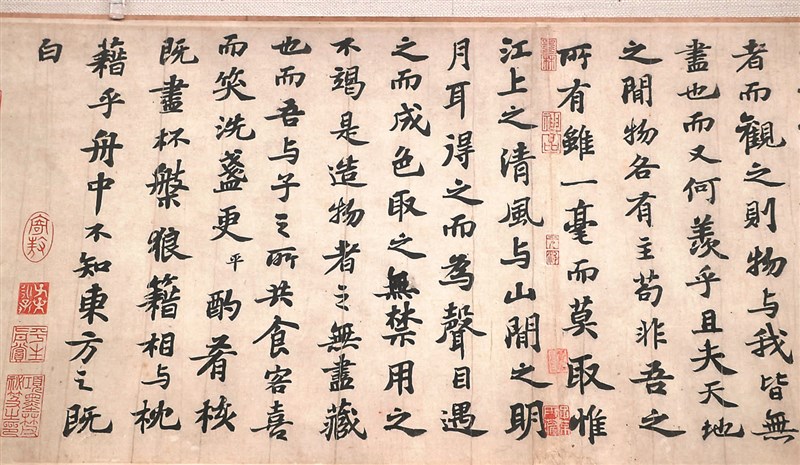 者而觀之則物与我皆無
盡也而又何羨乎且夫天地
之閒物各有主苟非吾之
所有雖一毫而莫取惟
江上之清風与山閒之明
月耳得之而為聲目遇
之而成色取之無禁用之
不竭是造物者之無盡藏
也而吾与子之所共食客喜
而笑洗盞更平酌肴核
既盡杯槃狼籍相与枕
藉乎舟中不知東方之既
白
神品